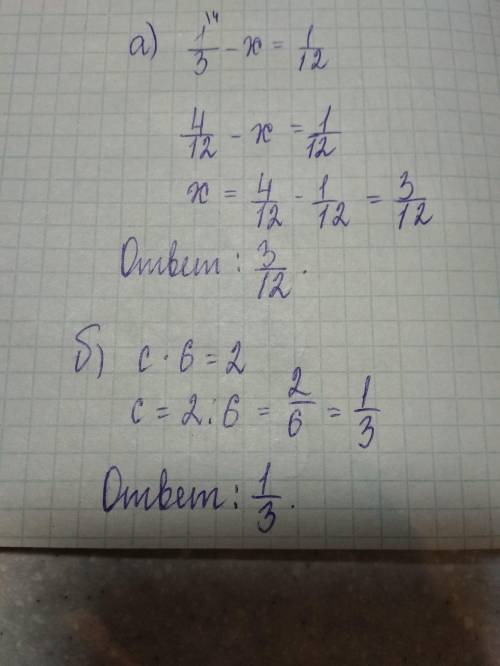 а) 1\4/3 - x = 1/12
4/12 - x = 1/12
x = 4/12 - 1/12 = 3/12
Ответ: 3/12.
б) c · 6 = 2
c = 2 : 6 = 2/6 = 1/3
Ответ: 1/3.